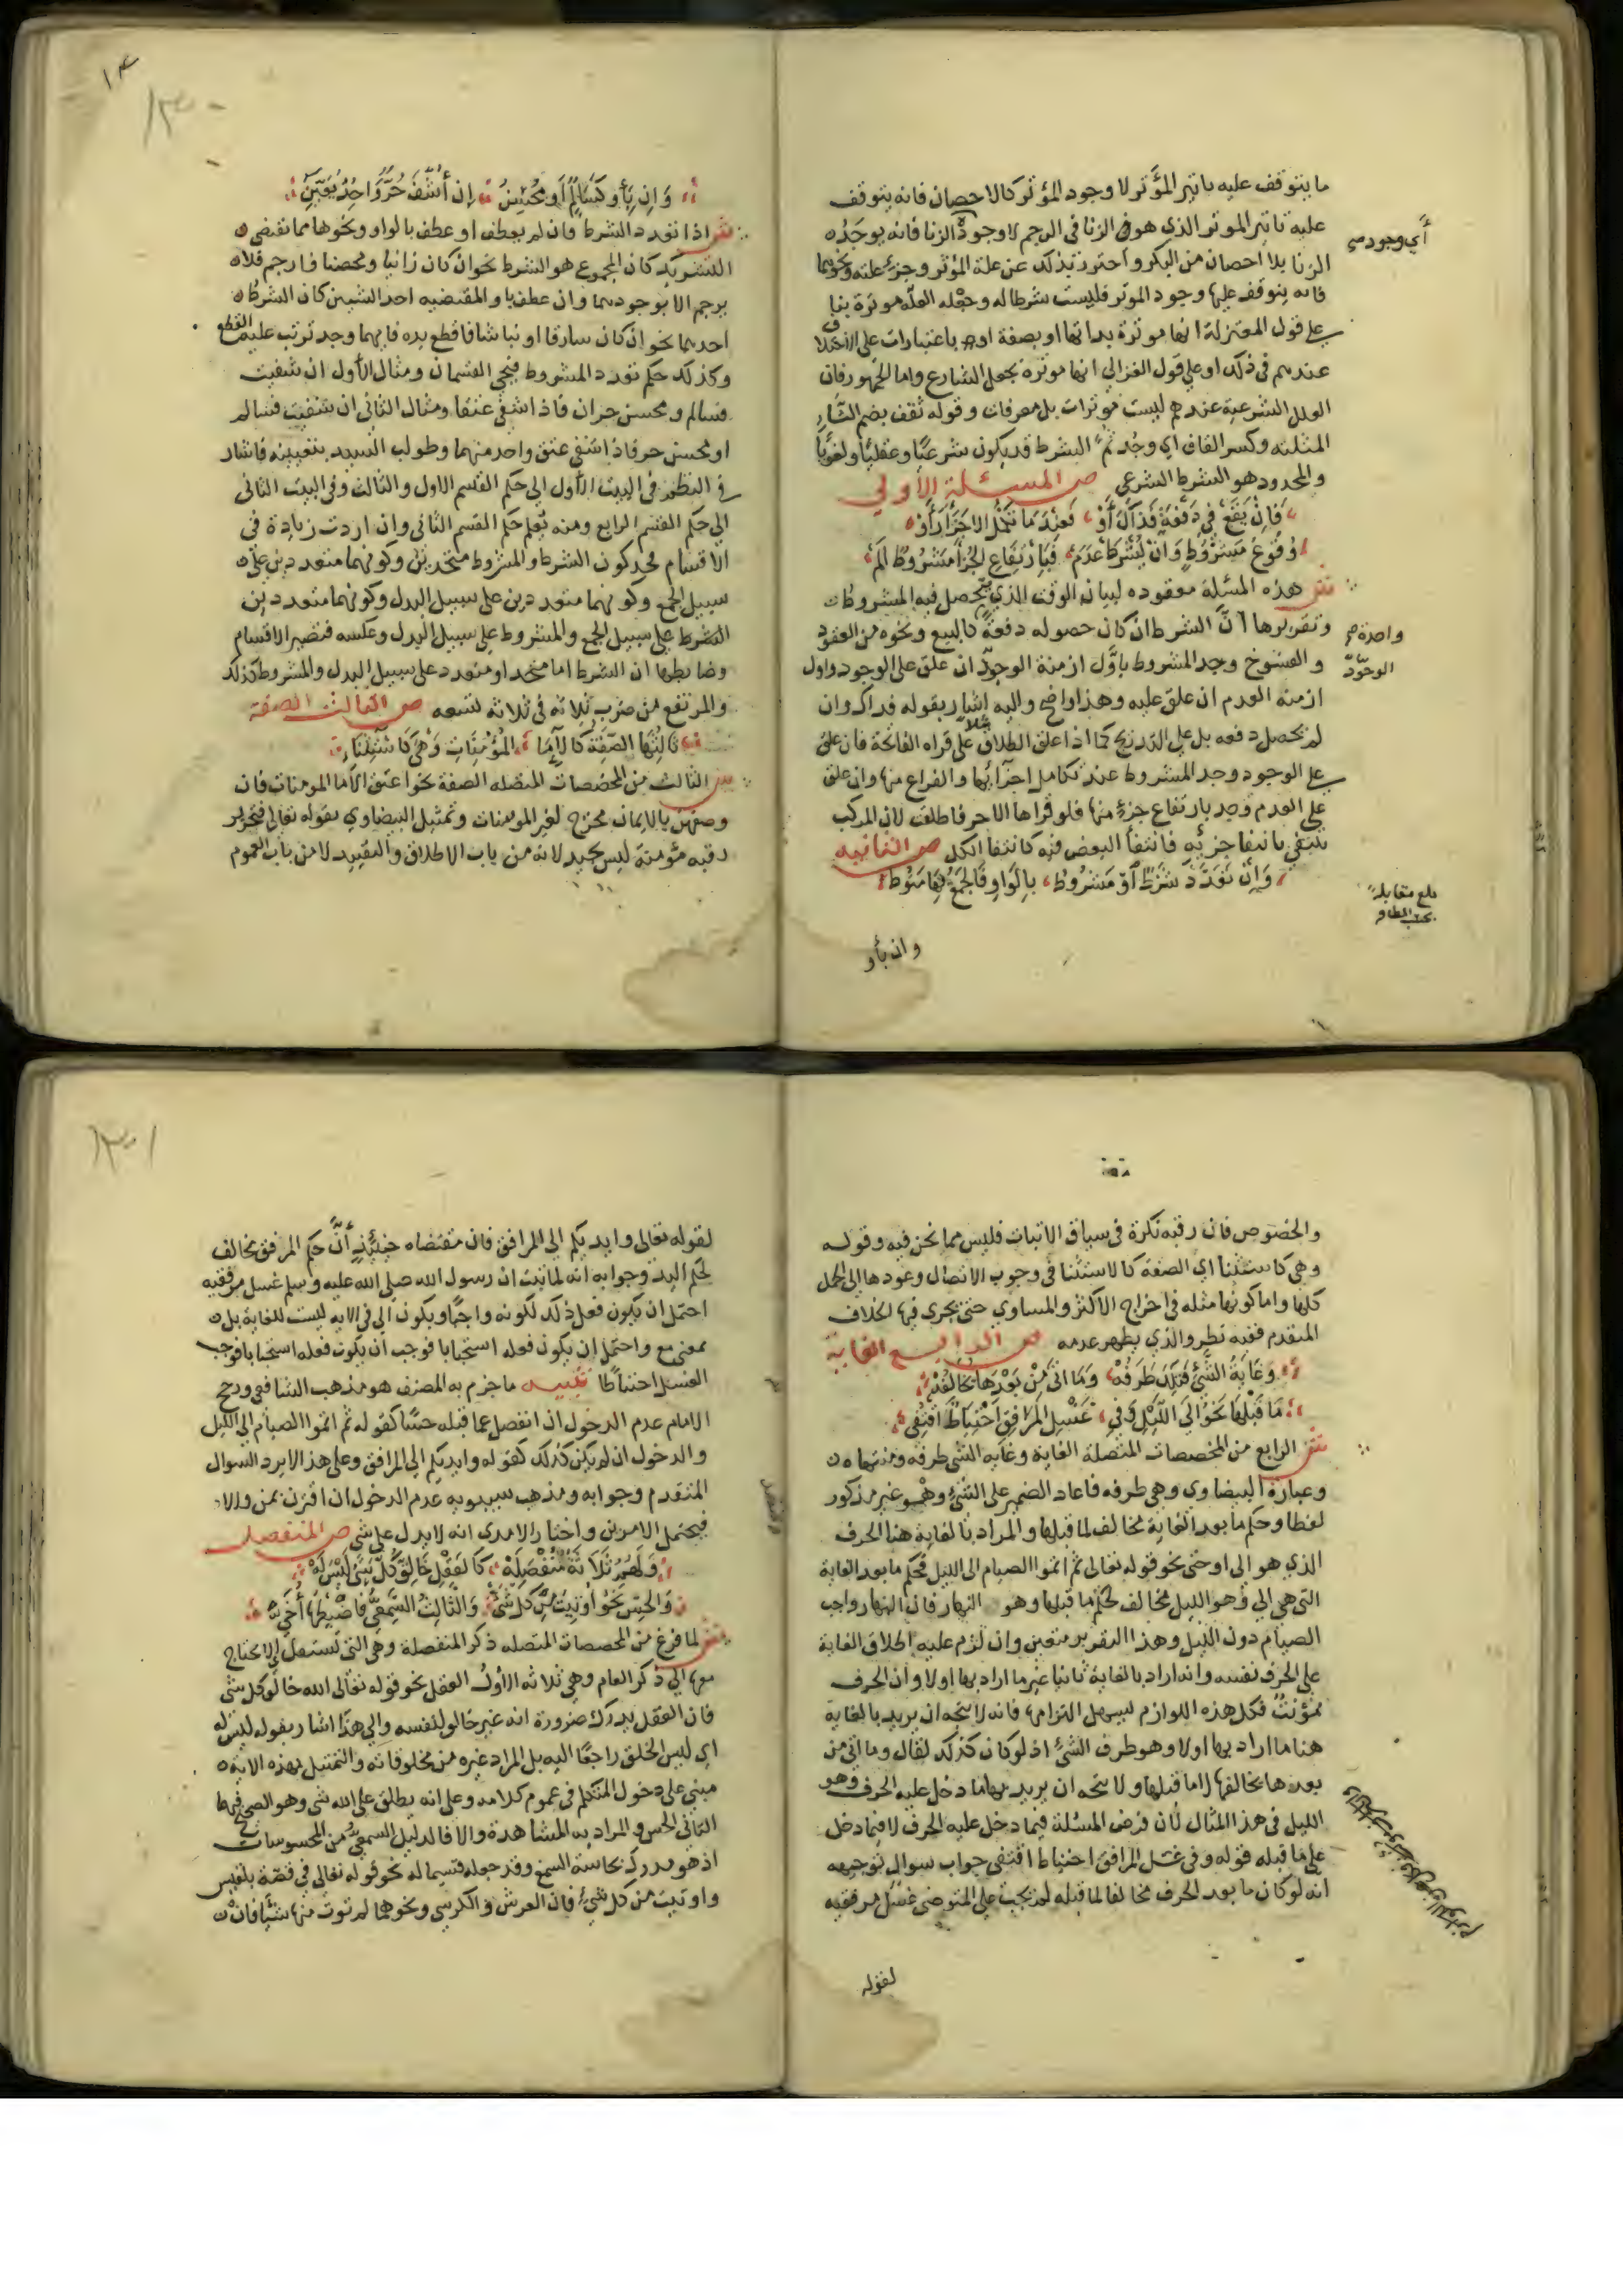 ما يتوقف عليه تاثير المؤثر لا وجود المؤثر كالاحصان فانه يتوقف
عليه تاثير الموثر الذي هو الزنا في الرجم لا وجود الزنا فانه يوجد
أي وجود
الزنا بلا احصان من البكر واحترز بذلك عن علة المؤثر وجزء علته ونحوهما
فانه يتوقف عليها وجود الموثر فليست شرطا له وجعله العلة موثرة بنا
على قول المعتزلة انها موثرة بذاتها او بصفة او باعتبارات على الاختلاف
عندهم في ذلك او على قول الغزالي انها موثرة بجعل الشارع واما الجمهور فان
العلل الشرعية عندهم ليست موثرات بل معرفات وقوله ثقف بضم الثاء
المثلثة وكسر القاف اي وجد ثم الشرط قد يكون شرعيا وعقليا ولغويا
والمحدود هو الشرط الشرعي ص المسئلة الاولى
فَإِنْ يَقَعْ فِي دَفْعَةٍ فَذَاكَ أَوْ فَعِنْدَمَا تَكْمُلُ الاجْزَا رَأَوْا
وُقُوعَ مَشْرُوطٍ وَإِنْ يُشْرَطْ عَدَم فَبِارْتِفَاعِ الجُزْءِ مَشْرُوطٌ أَلَم
ش هذه المسئلة معقوده لبيان الوقت الذي يحصل فيه المشروط
وتقريرها أنّ الشرط ان كان حصوله دفعةً كالبيع ونحوه من العقود
واحدة
و الفسوخ وجد المشروط باوّل ازمنة الوجود ان علق على الوجود واول
الوجود
ازمنة العدم ان علق عليه وهذا واضح واليه اشار بقوله فذاك وان
لم يحصل دفعه بل على التدريج كما اذا علق الطلاق مثلا على قراة الفاتحة فان علق
على الوجود وجد المشروط عند تكامل اجزائها والفراغ منها وان علق
على العدم وجد بارتفاع جزء منها فلو قراها الا حرفا طلقت لان المركب
ينتفي بانتفا جزئه فانتفا البعض فيه كانتفا الكل ص الثانيه
وَإِنْ تَعَدَّدَ شَرْطٌ أوْ مَشْرُوطُ بِالوَاوِ فَالجَمْعُ بِهَا مَنُوطُ
بلغ مقابلة
وان بأو
١٣٠٠
وَإِن بِأَوْ كَسَالِمٌ أَو مُحْسِنُ إن أُشْفَ حُرٌّ وَاحِدٌ يُعَيَّنُ
ش اذا تعدد الشرط فان لم يعطف او عطف بالواو ونحوها مما تقتضي
التشريك كان المجموع هو الشرط نحو ان كان زانيا ومحصنا فارجم فلا
يرجم الا بوجودهما وان عطف باو المقتضيه احد الشيين كان الشرط
احدهما نحو ان كان سارقا او نباشا فاقطع يده فايهما وجد ترتب عليه القطع
وكذلك حكم تعدد المشروط فيجي القسمان ومثال الأول ان شفيت
فسالم ومحسن حران فاذا شفي عتقا ومثال الثاني ان شفيت فسالم
او محسن حر فاذا شفي عتق واحد منهما وطولب السيد بتعيينه فاشار
في النظم في البيت الأول الى حكم القسم الاول والثالث وفي البيت الثاني
الى حكم القسم الرابع ومنه تعلم حكم القسم الثاني وان اردت زيادة في
الاقسام فخذ كون الشرط والمشروط متحدين وكونهما متعددين على
سبيل الجمع وكونهما متعددين على سبيل البدل وكونهما متعددين
الشرط على سبيل الجمع والمشروط على سبيل البدل وعكسه فتصير الاقسام
وضابطها ان الشرط اما متحد او متعدد على سبيل البدل والمشروط كذلك
والمرتفع من ضرب ثلاثة في ثلاثة تسعه ص الثالث الصفة
ثَالِثُهَا الصِّفَةُ كَالإِمَا المُؤْمِنَاتِ وَهْيَ كَاسْتِثْنَاءِ
ش الثالث من المخصصات المتصله الصفة نحو اعتق الاما المومنات فان
وصفهن بالايمان مخرج لغير المومنات وتمثيل البيضاوي بقوله تعالى فتحرير
رقبه مؤمنة ليس بجيد لانه من باب الاطلاق والتقييد لا من باب العموم
والخصوص فان رقبه نكرة في سياق الاثبات فليس مما نحن فيه وقوله
وهي كاستثنا اي الصفة كالاستثنا في وجوب الاتصال وعودها الى الجمل
كلها واما كونها مثله في اخراج الاكثر والمساوي حتى يجري فيها الخلاف
المتقدم ففيه نظر والذي يظهر عدمه ص الرابع الغاية
وَغَايَةُ الشَّيْءِ فَتِلْكَ طَرَفُهْ وَمَا أتَى مِنْ بَعْدِهَا يُخَالِفُهْ
مَا قَبْلَهَا نَحْوُ إِلَى اللَّيْلِ وَفِي غَسْلِ المَرَافِقِ احْتِيَاطٌ اقْتُفِي
ش الرابع من المخصصات المتصلة الغاية وغاية الشي طرفه ومنتهاه
وعبارة البيضاوي وهي طرفه فاعاد الضمير على الشيء وهو غير مذكور
لفظا وحكم ما بعد الغاية مخالف لما قبلها والمراد بالغاية هنا الحرف
الذي هو الى او حتى نحو قوله تعالى ثم اتموا الصيام الى الليل فحكم ما بعد الغاية
التي هي الى وهو الليل مخالف لحكم ما قبلها وهو النهار فان النهار واجب
الصيام دون الليل وهذا التقرير متعين وان لزم عليه اطلاق الغاية
على الحرف نفسه وانه اراد بالغاية ثانيا غير ما اراد بها اولا وان الحرف
مؤنث فكل هذه اللوازم ليسهل التزامها فانه لا يتجه ان يريد بالغاية
هنا ما اراد بها اولا وهو طرف الشيء اذ لو كان كذلك لقال وما اتى من
بعدها يخالفها لا ما قبلها ولا يتجه ان يريد بها ما دخل عليه الحرف وهو
الليل في هذا المثال لان فرض المسئلة فيما دخل عليه الحرف لا فيما دخل
على ما قبله قوله وفي غسل المرافق احتياط اقتفي جواب سوال توجيهه
انه لو كان ما بعد الحرف مخالفا لما قبله لم يجب على المتوضي غسل مرفقيه
لقوله
١٣٠١
لقوله تعالى وايديكم الى المرافق فان مقتضاه حينئذ أنَّ حكم المرفق مخالف
لحكم اليد وجوابه انه لما ثبت ان رسول الله صلى الله عليه وسلم غسل مرفقيه
احتمل ان يكون فعل ذلك لكونه واجبا ويكون الى في الايه ليست للغاية بل
بمعنى مع واحتمل ان يكون فعله استحبابا فوجب ان يكون فعله استحبابا فوجب
الغسل احتياطا تنبيه ما جزم به المصنف هو مذهب الشافعي ورجح
الامام عدم الدخول ان انفصل عما قبله حسا كقوله ثم اتموا الصيام الى الليل
والدخول ان لم يكن كذلك كقوله وايديكم الى المرافق وعلى هذا لا يرد السوال
المتقدم وجوابه ومذهب سيبويه عدم الدخول ان اقترن بمن والا
فيحتمل الامرين واختار الامدي انه لا يدل على شي ص المنفصل
وَلَهُمُ ثَلاَثَةٌ مُنْفَصِلَهْ كَالعَقْلِ خَالِقُ كُلِّ شَيْءٍ لَيْسَ لَهْ
وَالحِسِّ نَحْوُ أُوتِيَتْ مِنْ كُلِّ شَيْءْ وَالثَّالِثُ السَّمْعِيُّ
ش لما فرغ من المخصصات المتصله ذكر المنفصلة وهي التي تستقل اي لا يحتاج
معها الى ذكر العام وهي ثلاثه الأول العقل نحو قوله تعالى الله خالق كل شي
فان العقل يدرك ضرورة انه غير خالق لنفسه والى هذا اشار بقوله ليس له
اي ليس الخلق راجعا اليه بل المراد غيره من مخلوقاته والتمثيل بهذه الايه
مبني على دخول المتكلم في عموم كلامه وعلى انه يطلق على الله شي وهو الصحيح فيهما
الثاني الحس والمراد به المشاهدة والا فالدليل السمعي من المحسوسات
اذ هو مدرك بحاسة السمع وقد جعله قسيما له نحو قوله تعالى في قصة بلقيس
واوتيت من كل شيء فان العرش والكرسي ونحوهما لم توت منها شيأ فان